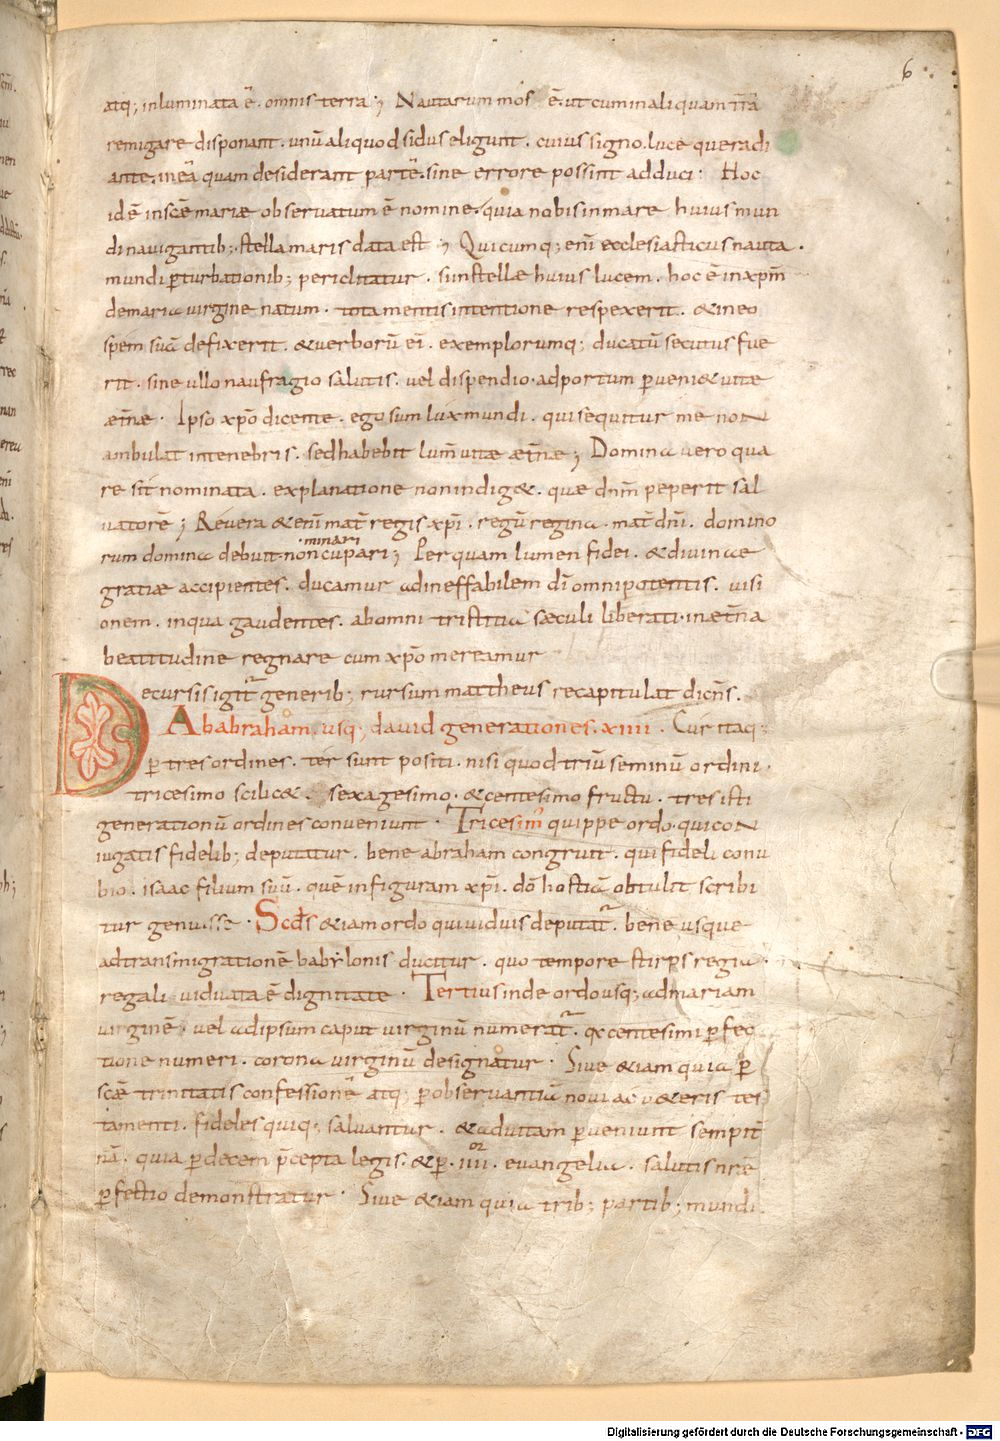 6
atq; inluminata ē. omnis terra; Nautarum mos ē. ut cum in aliquam t̄rā
remigare disponant. unū aliquod sidus eligunt. cuius signo. luce queradi
ante. in eā quam desiderant partē. sine errore possint adduci: Hoc
idē in scē mariæ observatum ē nomine. quia nobis in mare huius mun
di navigantib; stella maris data est; Quicumq; eni ecclesiasticus nauta.
mundi ꝑturbationib; periclitatur. si in stellæ huius lucem. hoc ē in xp̄m
de maria virgine natum. tota mentis intentione respexerit. & in eo
spem suā defixerit. & verborū ei. exemplorumq; ducatū secutus fue
rit. sine ullo naufragio salutis. vel dispendio. ad portum ꝑveni& vitæ
æt̄næ. Ipso xp̄o dicente. ego sum lux mundi. qui sequitur me non
ambulat in tenebris. sed habebit lum̄ vitæ æt̄næ; Domina vero qua
re sit nominata. explanatione non indig&. quæ dn̄m peperit sal
vatorē; Revera &eni mat̄ regis xp̄i. regū regina. mat̄ dn̄i. domino
minari
rum domina debuit. noncupari; Per quam lumen fidei. & divinæ
gratiæ accipientes. ducamur ad ineffabilem dī omnipotentis. visi
onem. in qua gaudentes. ab omni tristitia sæculi liberati. in æt̄na
beatitudine regnare cum xp̄o mereamur
Decursis igit̄ generib; rursum mattheus recapitulat dicn̄s.
Ab abraham. usq; david generationes. xiiii. Cur itaq;
ꝑ tres ordines. ter sunt positi. nisi quod triū seminū ordini.
tricesimo scilic&. sexagesimo. & centesimo fructu. tres isti
generationū ordines conveniunt. Tricesim quippe ordo. qui con
iugatis fidelib; deputatur. bene abraham congruit. qui fideli conu
bio. isaac filium suū. quē in figuram xp̄i. dō hostiā obtulit scribi
tur genuisse. Scd̄s &iam ordo qui viduis deputat̄. bene usque
ad transmigrationē babylonis ducitur. quo tempore stirps regia.
regali viduata ē dignitate. Tertius inde ordo usq; ad mariam
virginē. vel ad ipsum caput virginū numerat̄. q centesimi ꝑfec
tione numeri. corona virginū designatur. Sive &iam quia ꝑ
scæ trinitatis confessionē atq; ꝑ observantiā novi ac v&eris tes
tamenti. fideles quiq; salvantur. & ad vitam ꝑveniunt sempit̄
nā. quia ꝑ decem p̄cepta legis. & ꝑ. iiii. evangelia. salutis nr̄e
ꝑfectio demonstratur. Sive &iam quia trib; partib; mundi.
Digitalisierung gefördert durch die Deutsche Forschungsgemeinschaft - DFG